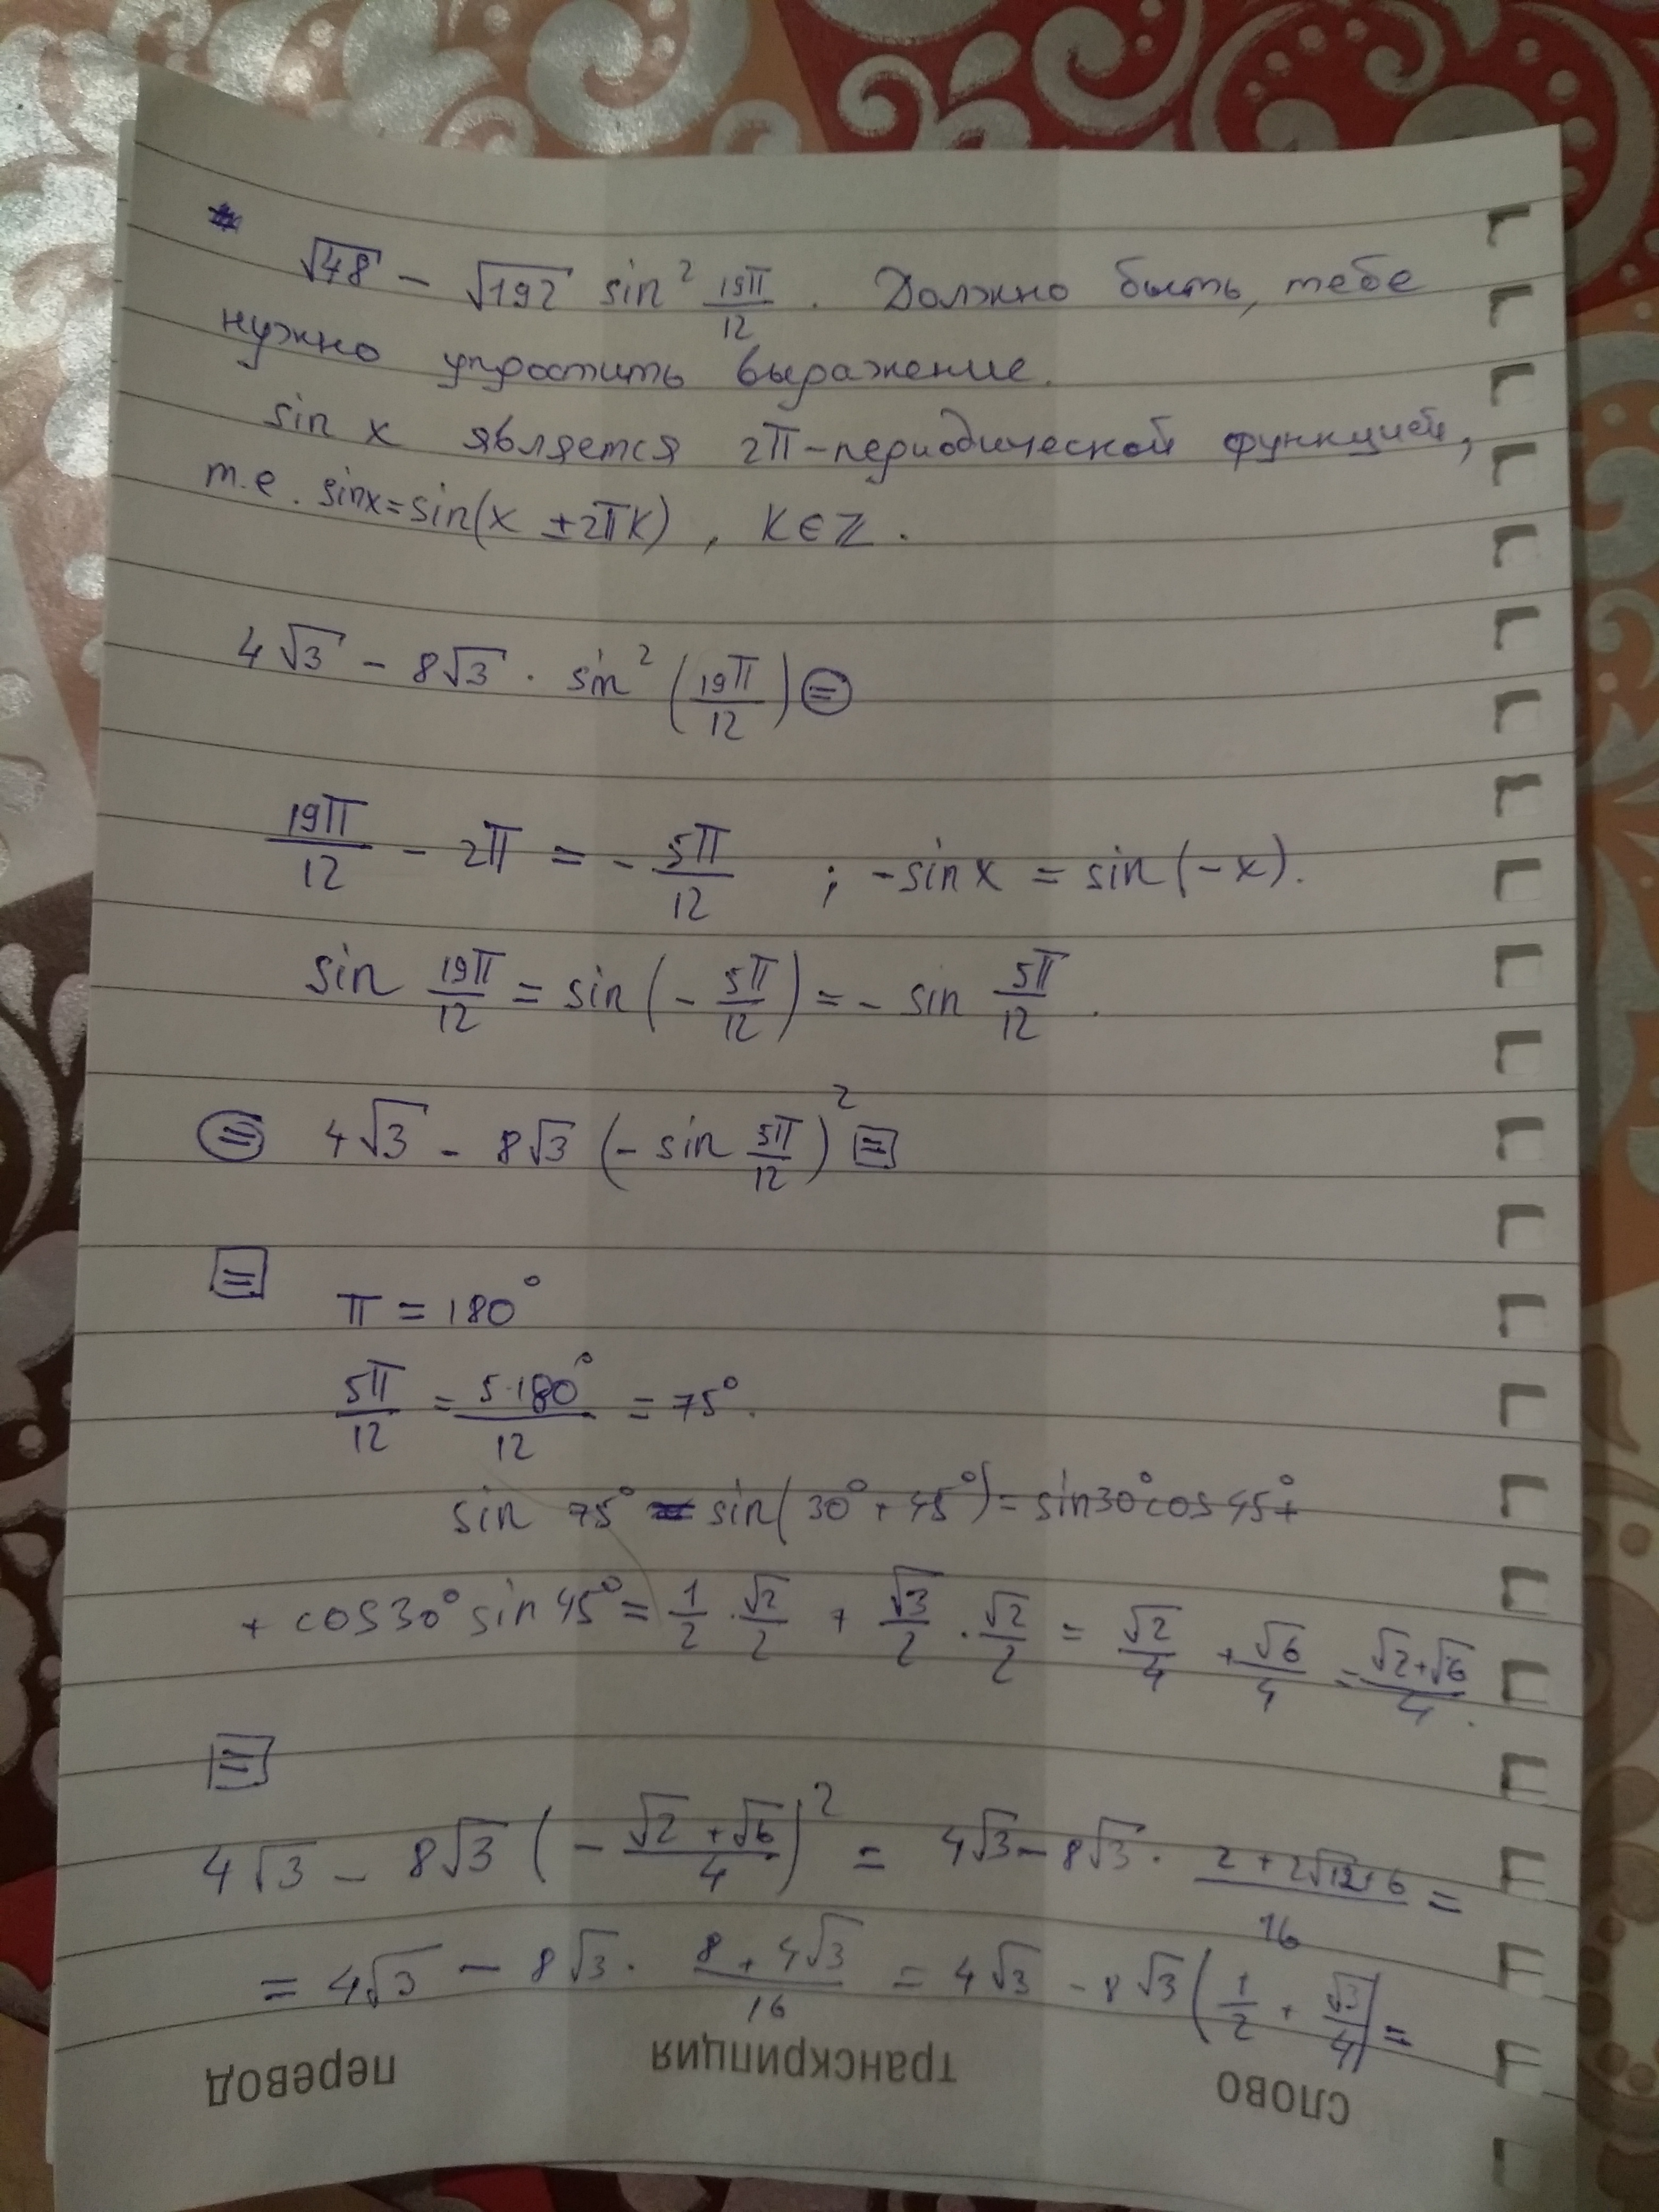 √48 − √192 sin² 19π/12 . Должно быть, тебе
нужно упростить выражение.
sin x является 2π-периодической функцией,
т.е. sinx=sin(x ±2πk) , k∈ℤ .
4√3 − 8√3 · sin² (19π/12) =
19π/12 − 2π = − 5π/12 ; −sinx = sin(−x).
sin 19π/12 = sin(− 5π/12) = − sin 5π/12 .
= 4√3 − 8√3 (− sin 5π/12)² =
= π = 180°
5π/12 = 5·180°/12 = 75°.
sin 75° = sin(30° + 45°) = sin30°cos45°+
+ cos30° sin45° = 1/2 · √2/2 + √3/2 · √2/2 = √2/4 + √6/4 = √2+√6/4 .
=
4√3 − 8√3 (− √2 + √6/4)² = 4√3 − 8√3 · 2 + 2√12+6/16 =
= 4√3 − 8√3 · 8 + 4√3/16 = 4√3 − 8√3 (1/2 + √3/4) =
слово транскрипция перевод